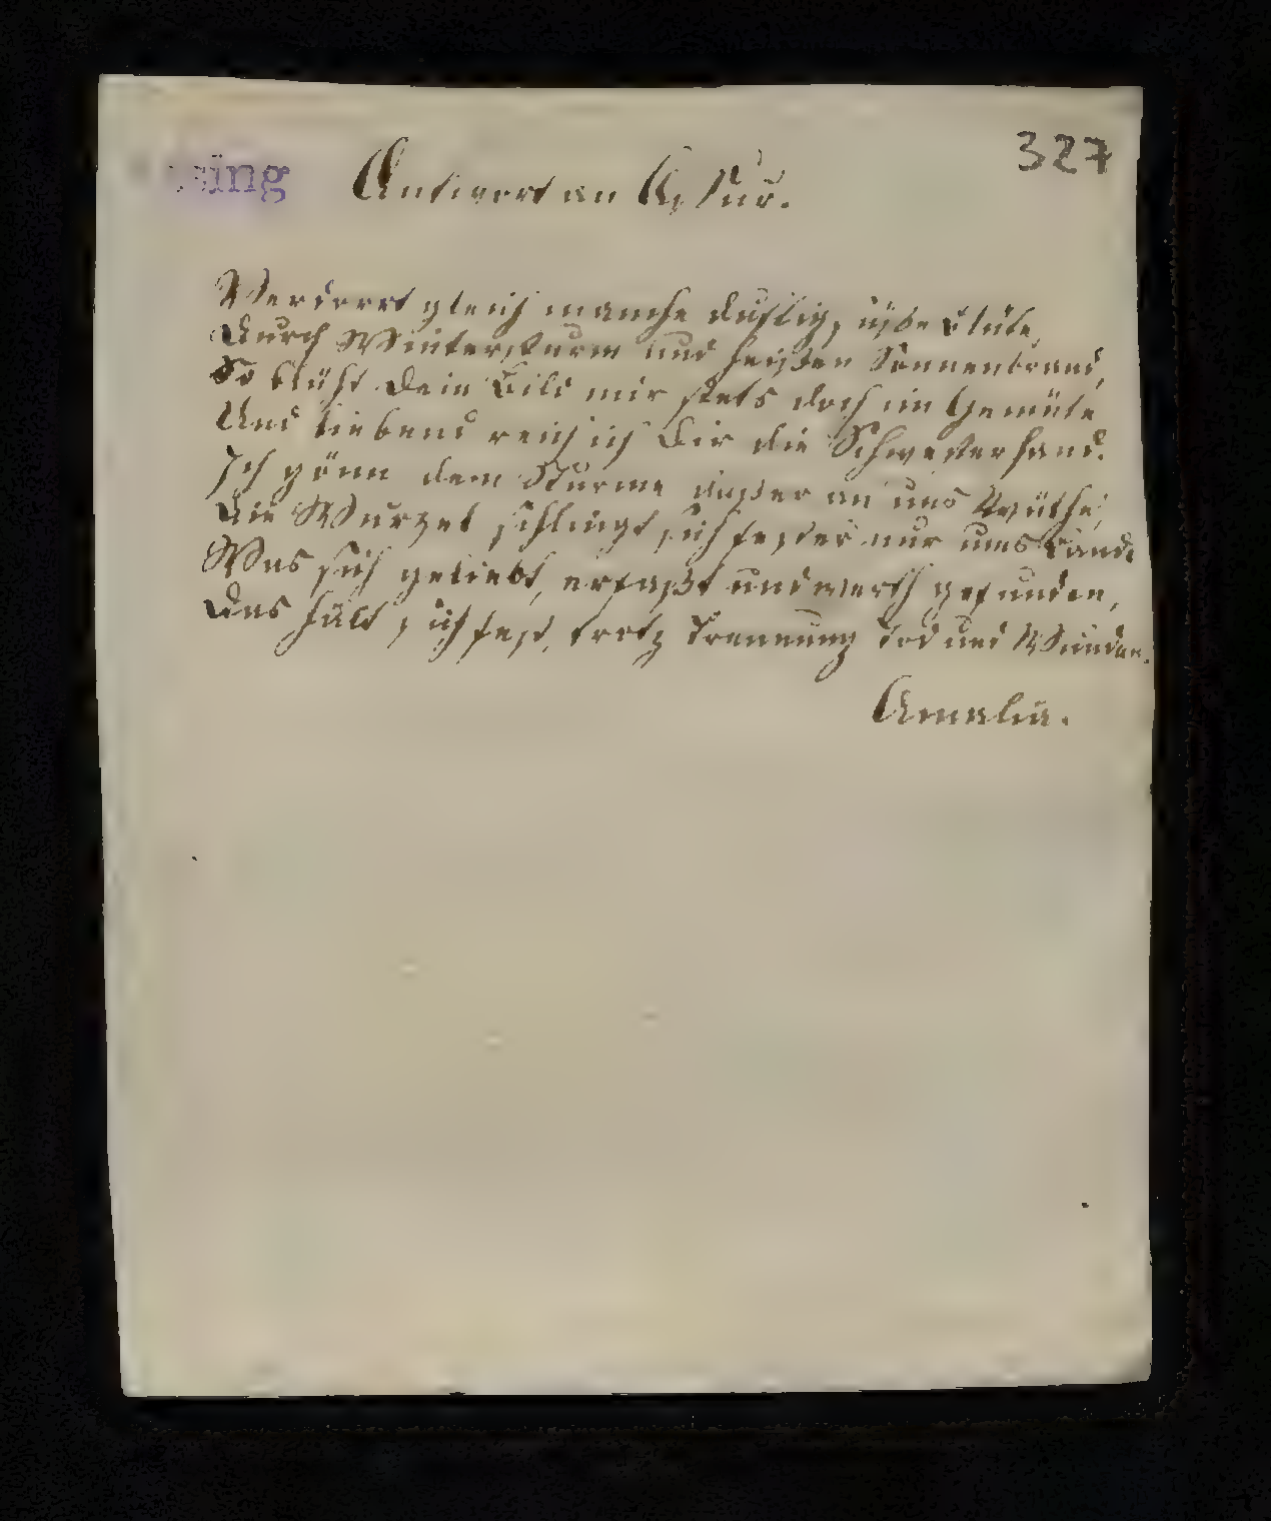 327
Antwort an
Verdorrt gleich manche duftig, süße Blüte,
Durch Wintersturm und heißen Sonnenbrand,
So blüht Dein Bild mir stets doch im Gemüte
Und liebend reich ich Dir die Schwesterhand.
Ich gönn dem Sturme daß er an uns wüthe,
Die Wurzel schlingt sich fester nur ums Band.
Was sich geliebt, erfaßt und werth gefunden,
Das hält sich fest, trotz Trennung Tod und Wunden.
Amalia.